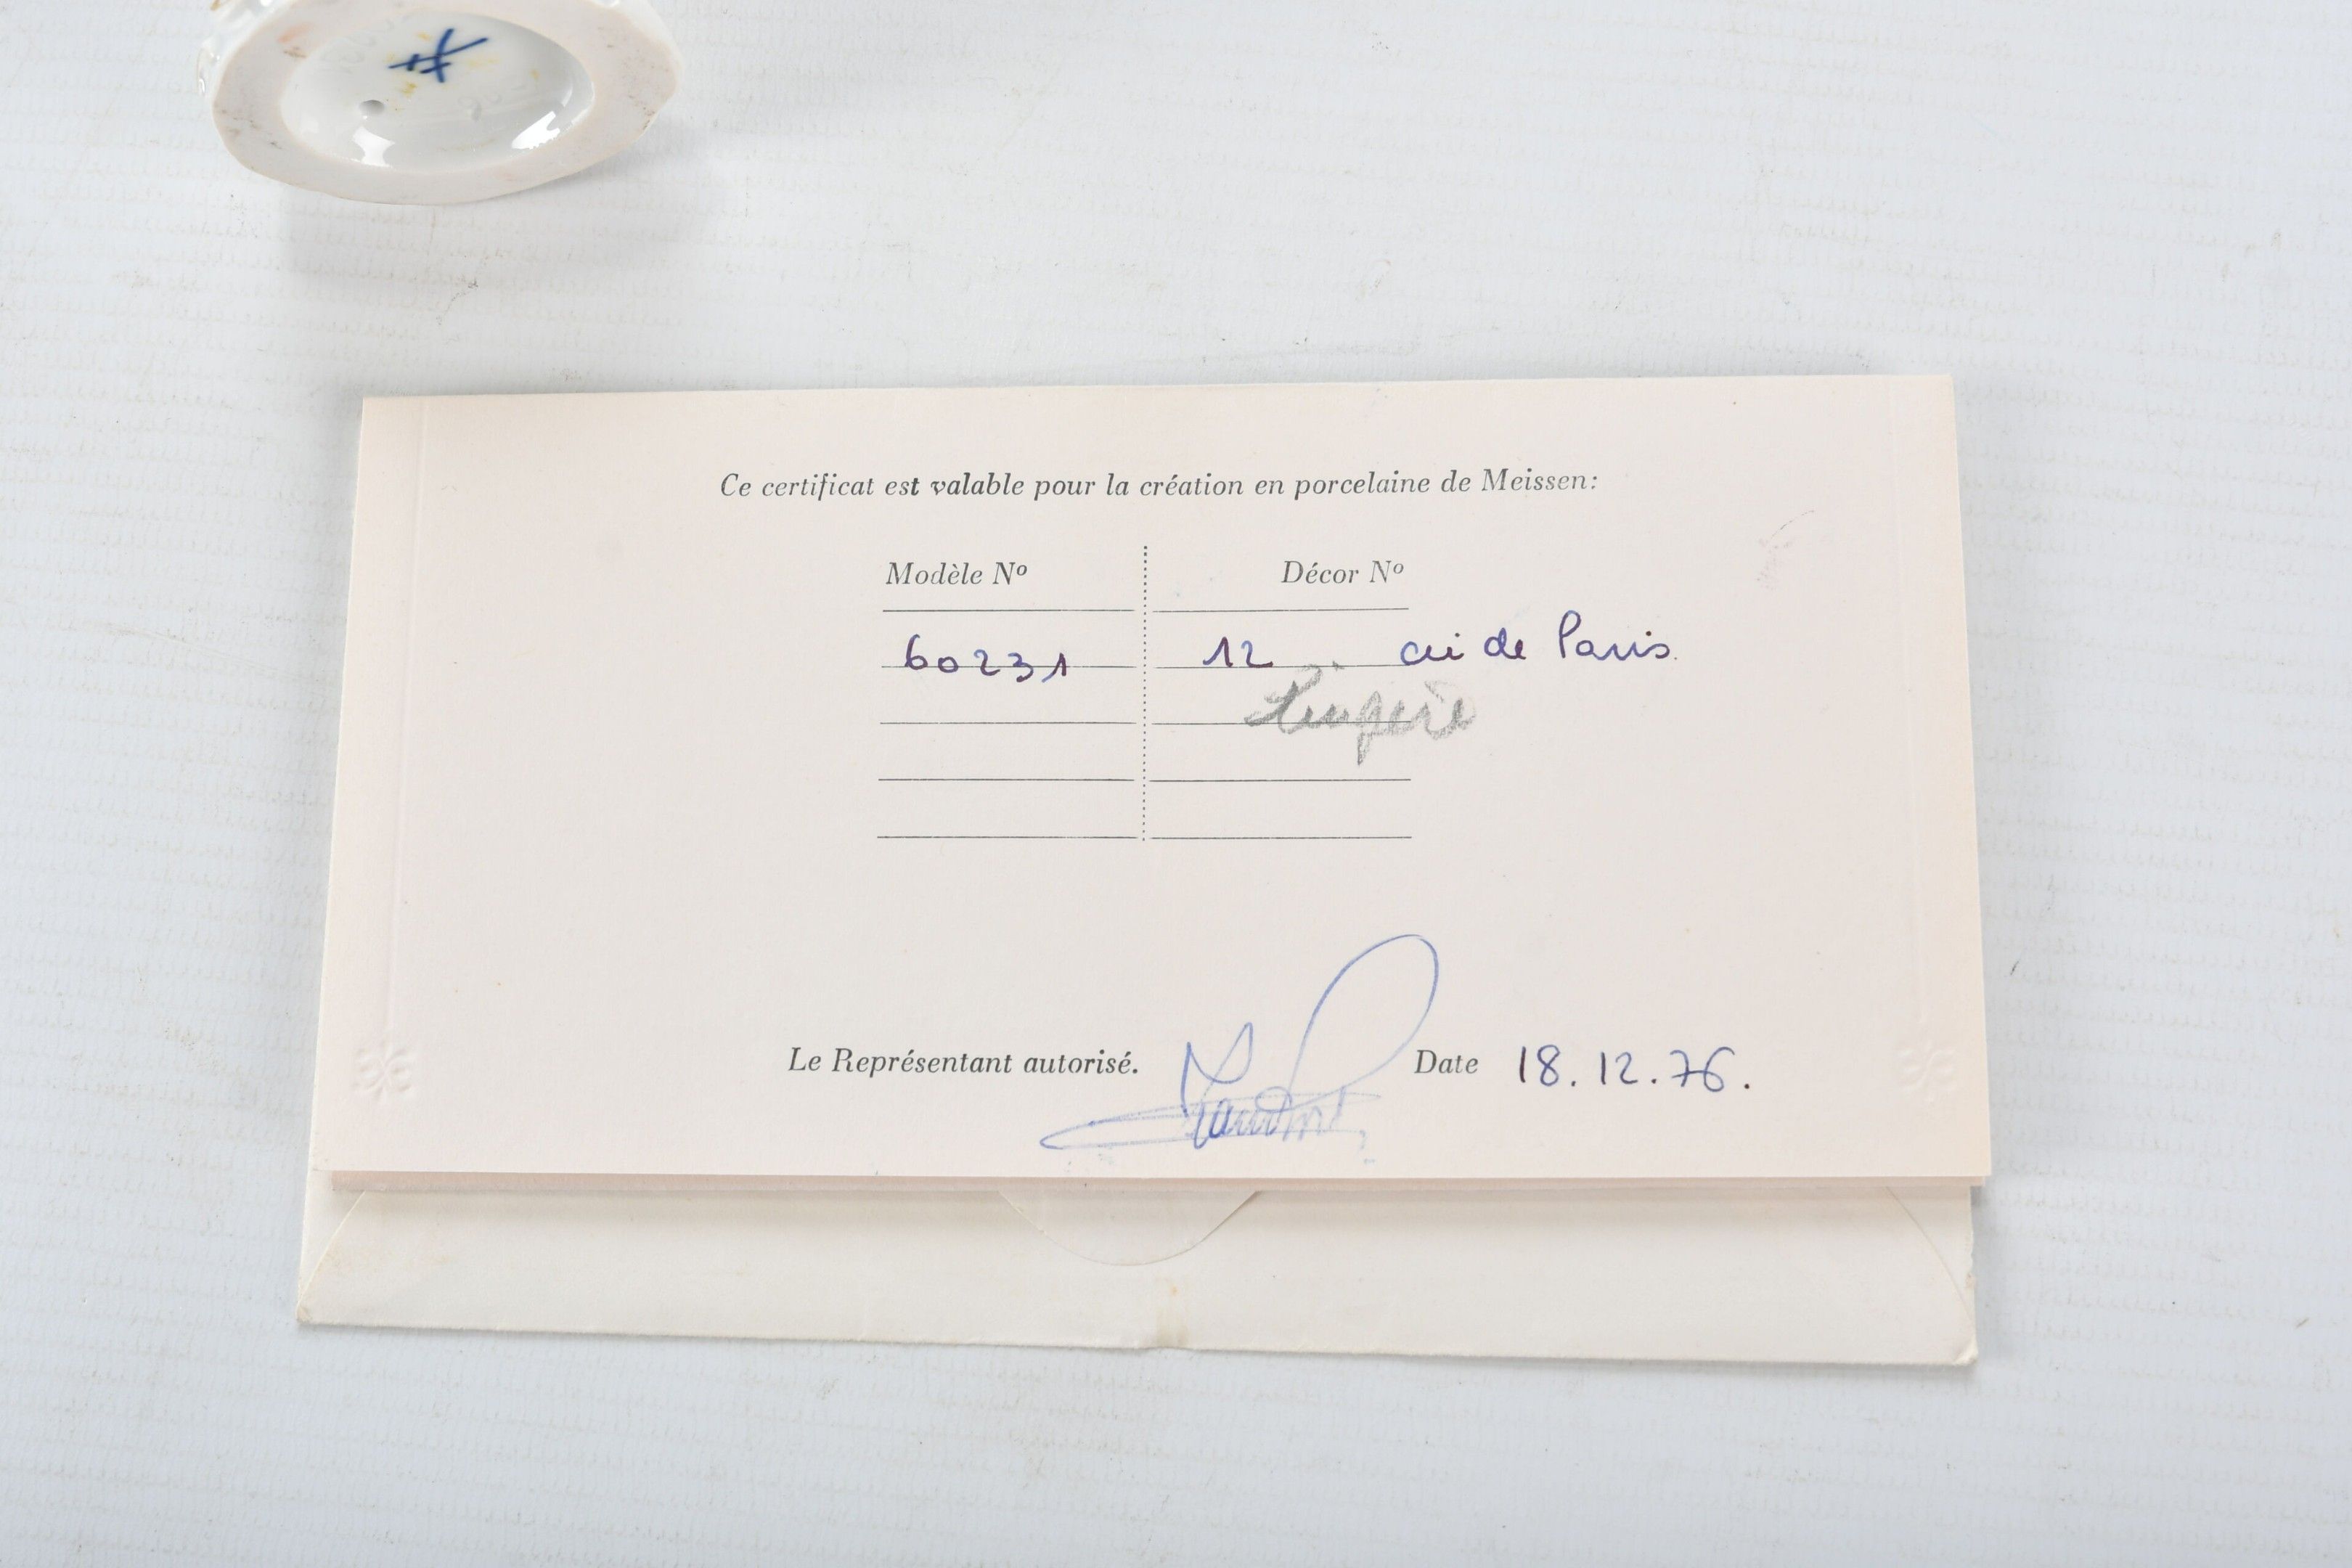 Ce certificat est valable pour la création en porcelaine de Meissen:
Modèle Nº Décor Nº
60231 12 cri de Paris
Lingère
Le Représentant autorisé. Date 18.12.76.